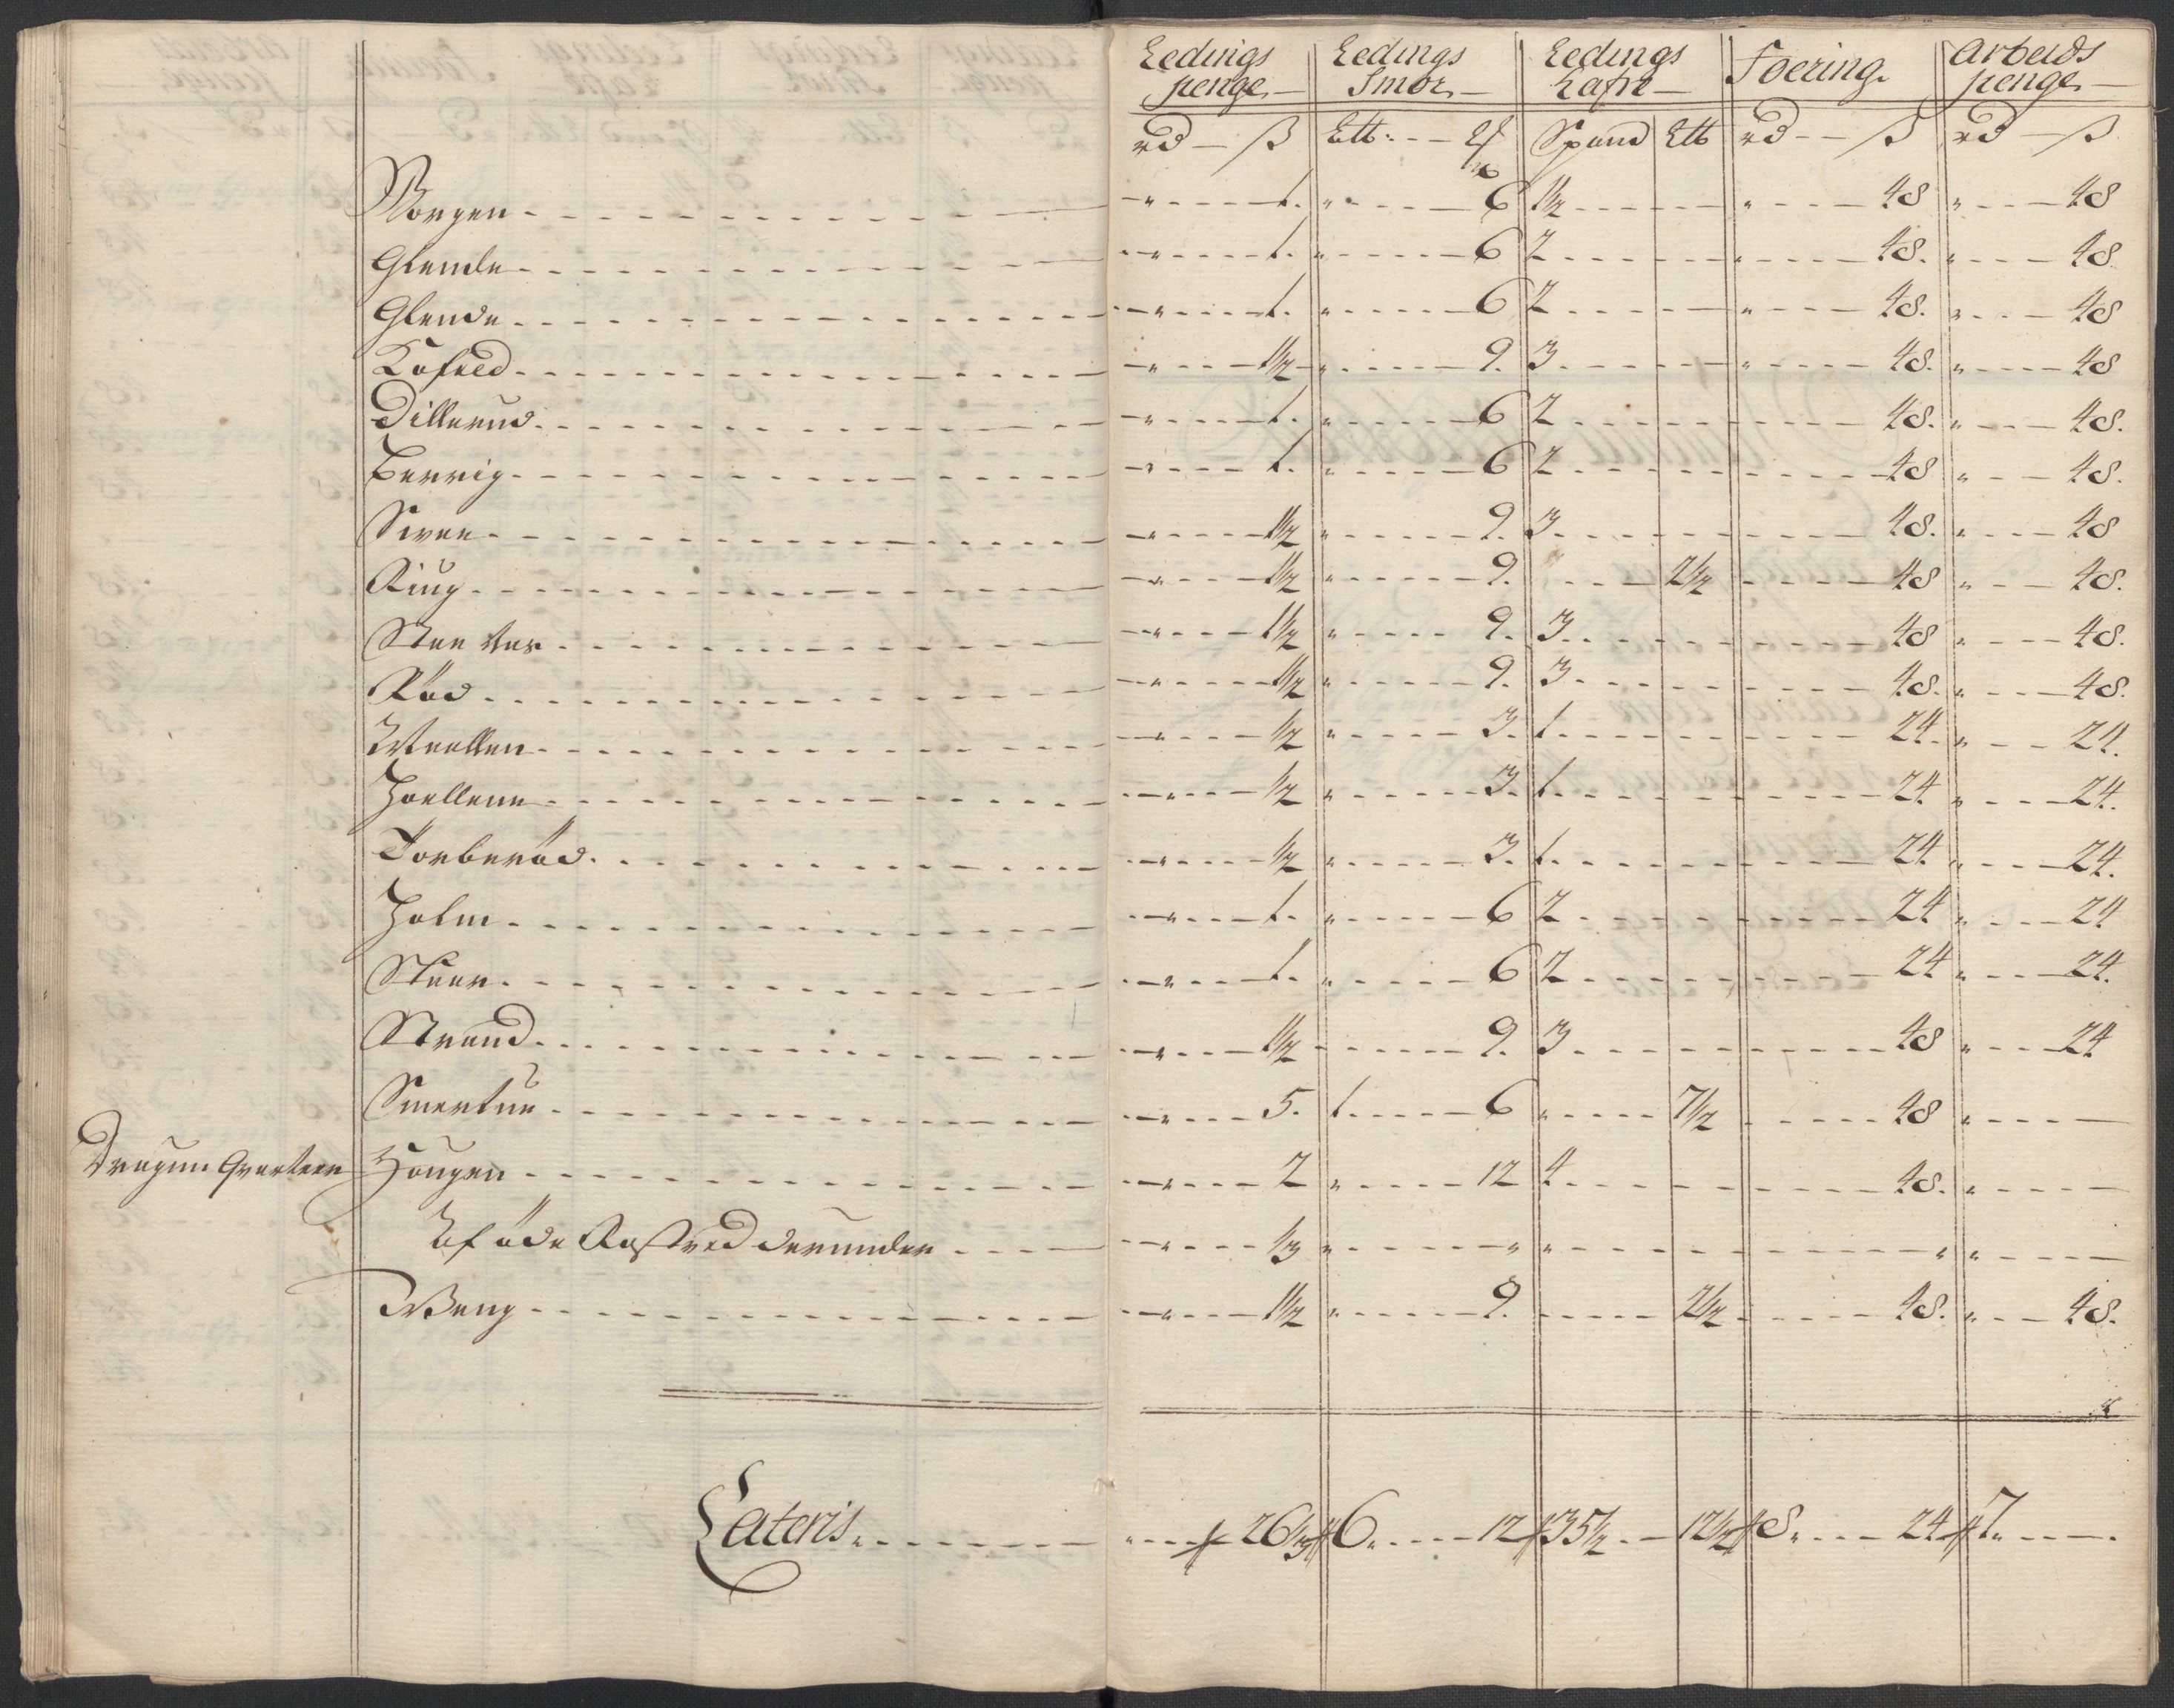 Ledings penge Ledings Smør Ledings Hafre Foering Arbeids penge
rd ß Lttb: Spand Lttb rd ß rd ß
Worgen 1. 6 1½ 48 48
Glende 1. 6 2 48. 48
Glende 1. 6 2 48. 48
Kofoed 1½ 9. 3 48. 48
Dillerud 1. 6 2 48. 48.
Berrig 1. 6 2 48 48.
Seven 1½ 9. 3 48. 48
Ring 1½ 9. 2½ 48 48.
1½ 9. 3 48 48.
Röd 1½ 9. 3 48. 48.
½ 3. 1 24. 24.
Hoellene ½ 3. 1 24 24.
Torberöd ½ 3. 1 24 24.
Holm 1. 6 2 24 24
1. 6 2 24 24.
Strand 1½ 9. 3 48 24
Smertuu 5. 1 6 7½ 48
Dragun Qvarteer Hougen 2 12 4 48.
Af öde Rostved derunder ⅓
Weng 1½ 9. 2½ 48. 48.
Lateris 26⅓ 6 12 35½ 12½ 8 24 7